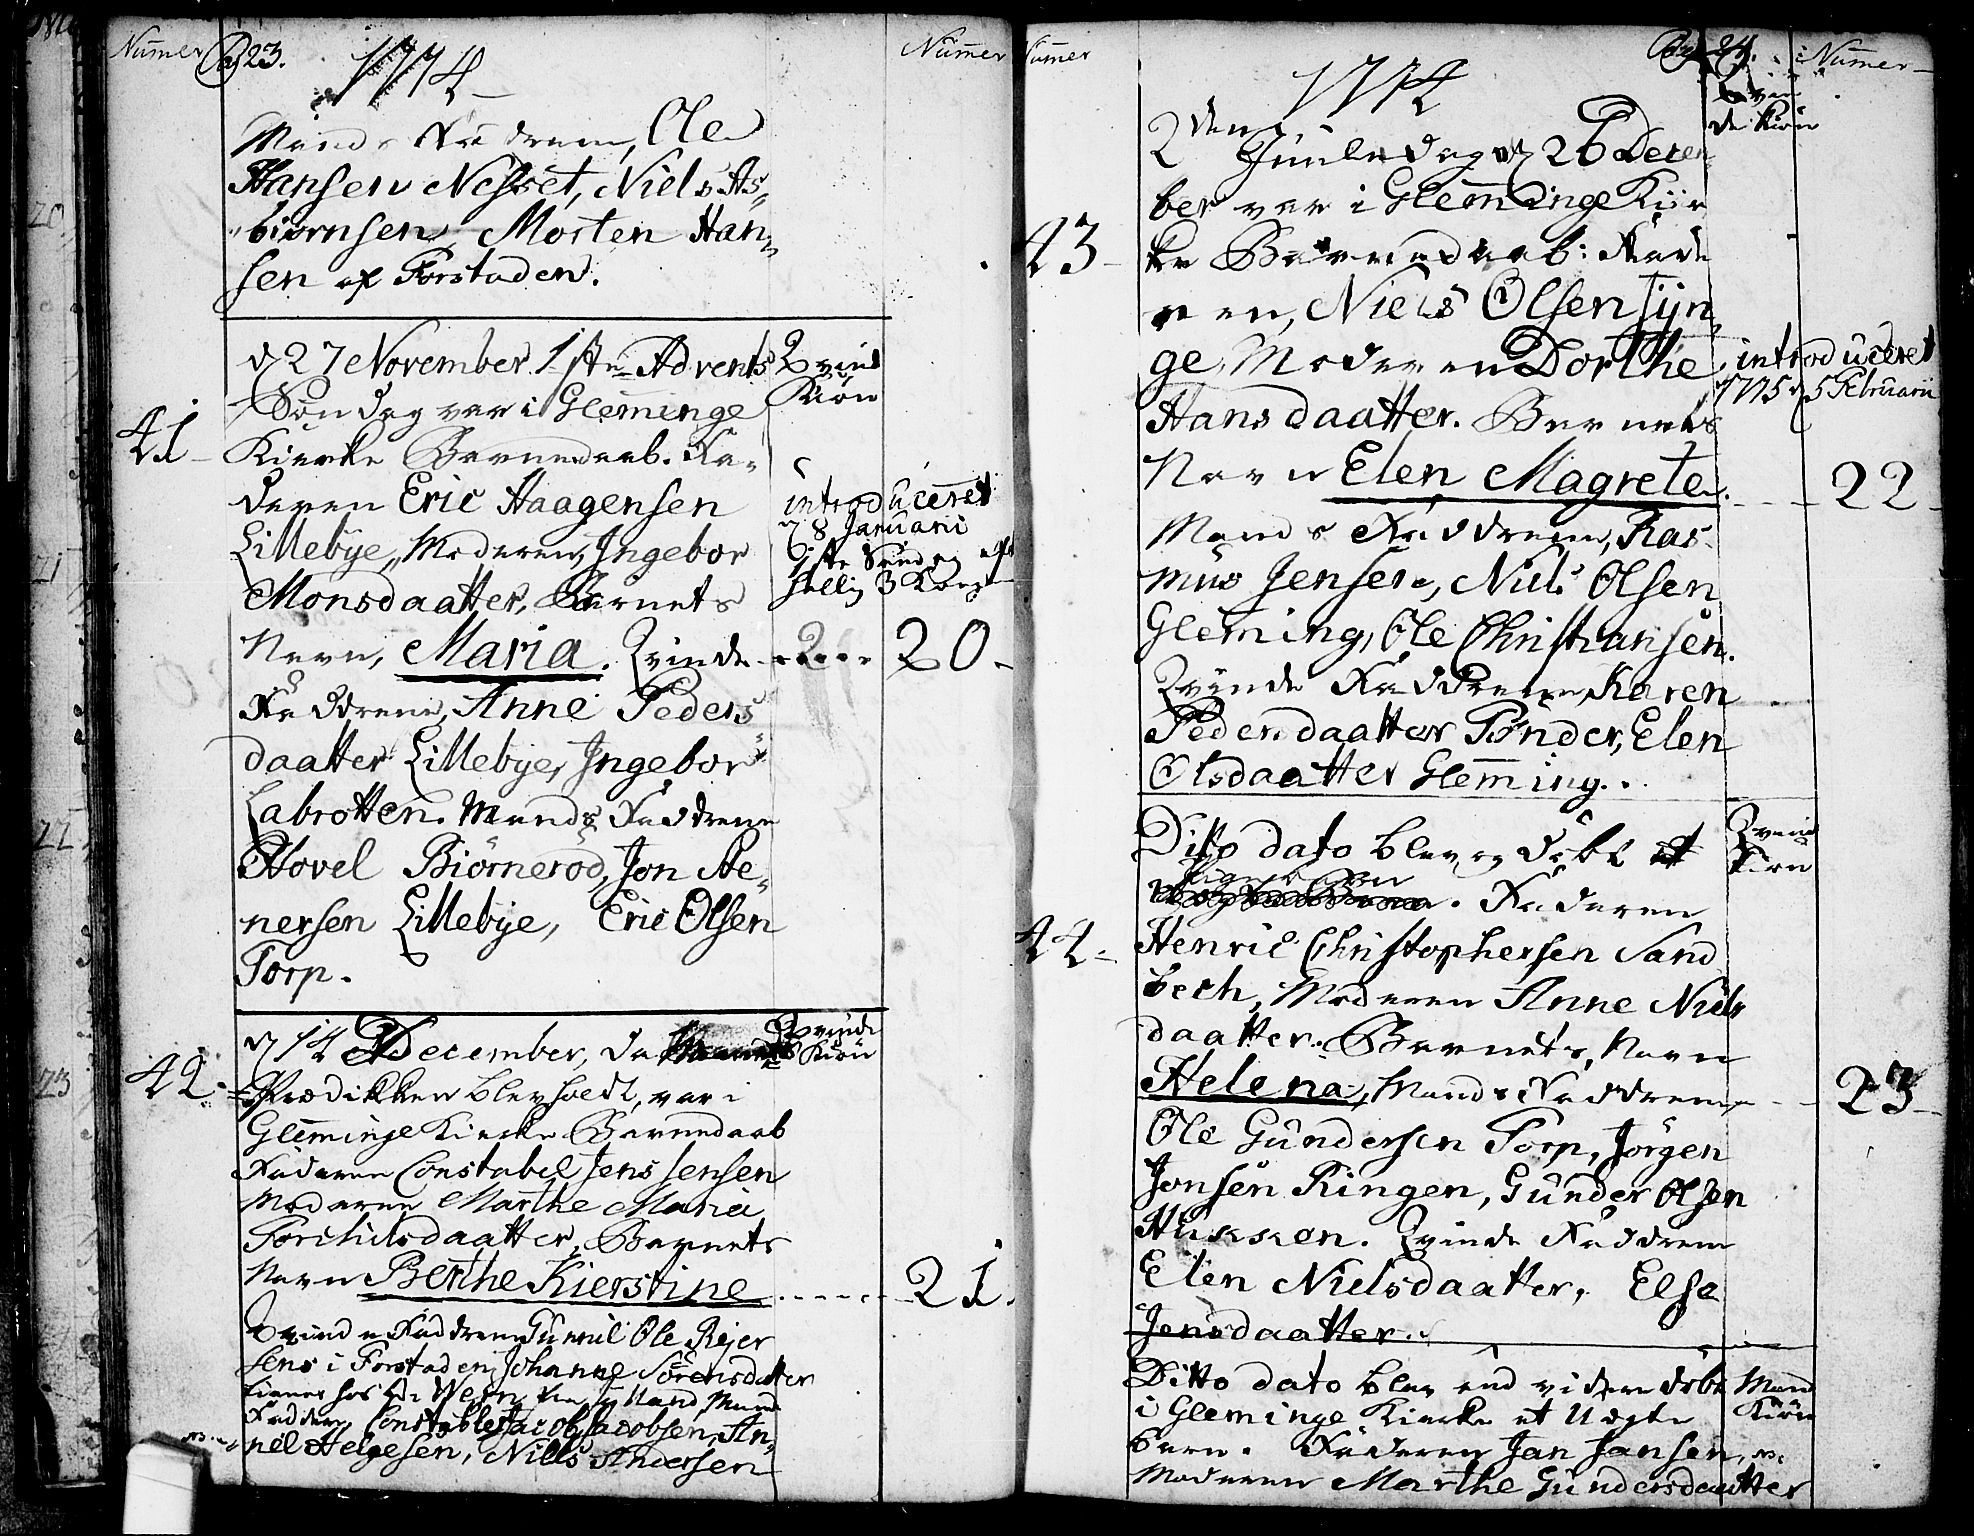 Nummer Pag 23. Nummer
1774
Mands Faddrene, Ole
Hansen Nesset, Niels As„
„biørnsen, Morten Han„
sen af Forstaden.
d 27 November 1ste Advents
Søndag var i Glemminge
41 Kierke Barnedaab. Fa„
deren Eric Haagensen
Lillebÿe, Moderen, Ingebor
Monsdaatter, Barnets
Navn, Maria. Qvinde
Faddrene, Anne Peders
daatter Lillebye, Ingebor
Labrotten. Mands Faddrene
Hovel Biørnerød, Jon
nersen Lillebye, Eric Olsen
Torp.
Qvind
Kiøn
introduceret
d 8 Januarii
1ste Sønd eft
hellig 3 Kong
2 20
d 14 December, da
42. Prædikken blev holdt, var i
Glemminge Kierke Barnedaab
Faderen Constabel Jens Jensen
Moderen Marthe Maria
Torchilsdaatter, Barnets
Navn Berthe Kierstine
Qvinde Faddrene Gunnil Ole Rejer
sens i Forstaden, Johanne Sørensdatter
tiener hos
Faddere, Constabler Jacob Jacobsen, An„
nel Helgesen, Niels Andersen
Qvinde
Kiøn
21.
Nummer Pag 24. Nummer
1774
2den Juule dag d 26 Decem
ber var i Glemminge Kiir
43 ke Barnedaab: Fade
ren, Niels Olsen Tÿn„
ge, Moderen Dorthe
Hansdaatter. Barnets
Navn Elen Magrete.
Mands Faddrene, Ras
mus Jensen, Niels Olsen
Gleming, Ole Christiansen.
Qvinde Faddrene, Karen
Pedersdaatter Tønder, Elen
Olsdaatter Glemming.
de Kiøn
introduceret
1775 d 5 Februarii
22
Dito dato blev og døbt et
. Faderen
44 Henric Christophersen Sand
bech, Moderen Anne Niels
daatter. Barnets, Navn
Helena, Mands Faddrene
Ole Gundersen Torp, Jørgen
Jonsen Ringen, Gunder Olsen
. Qvinde Faddrene
Elen Nielsdaatter, Else
Jensdaatter.
Qvind
Kiøn
23
Ditto dato blev end videre døbt
i Gleminge Kierke et Uægte
barn. Faderen Jan Jansen,
Moderen Marthe Gundersdaatter
Mand
Kiøn
20.
21
22
23